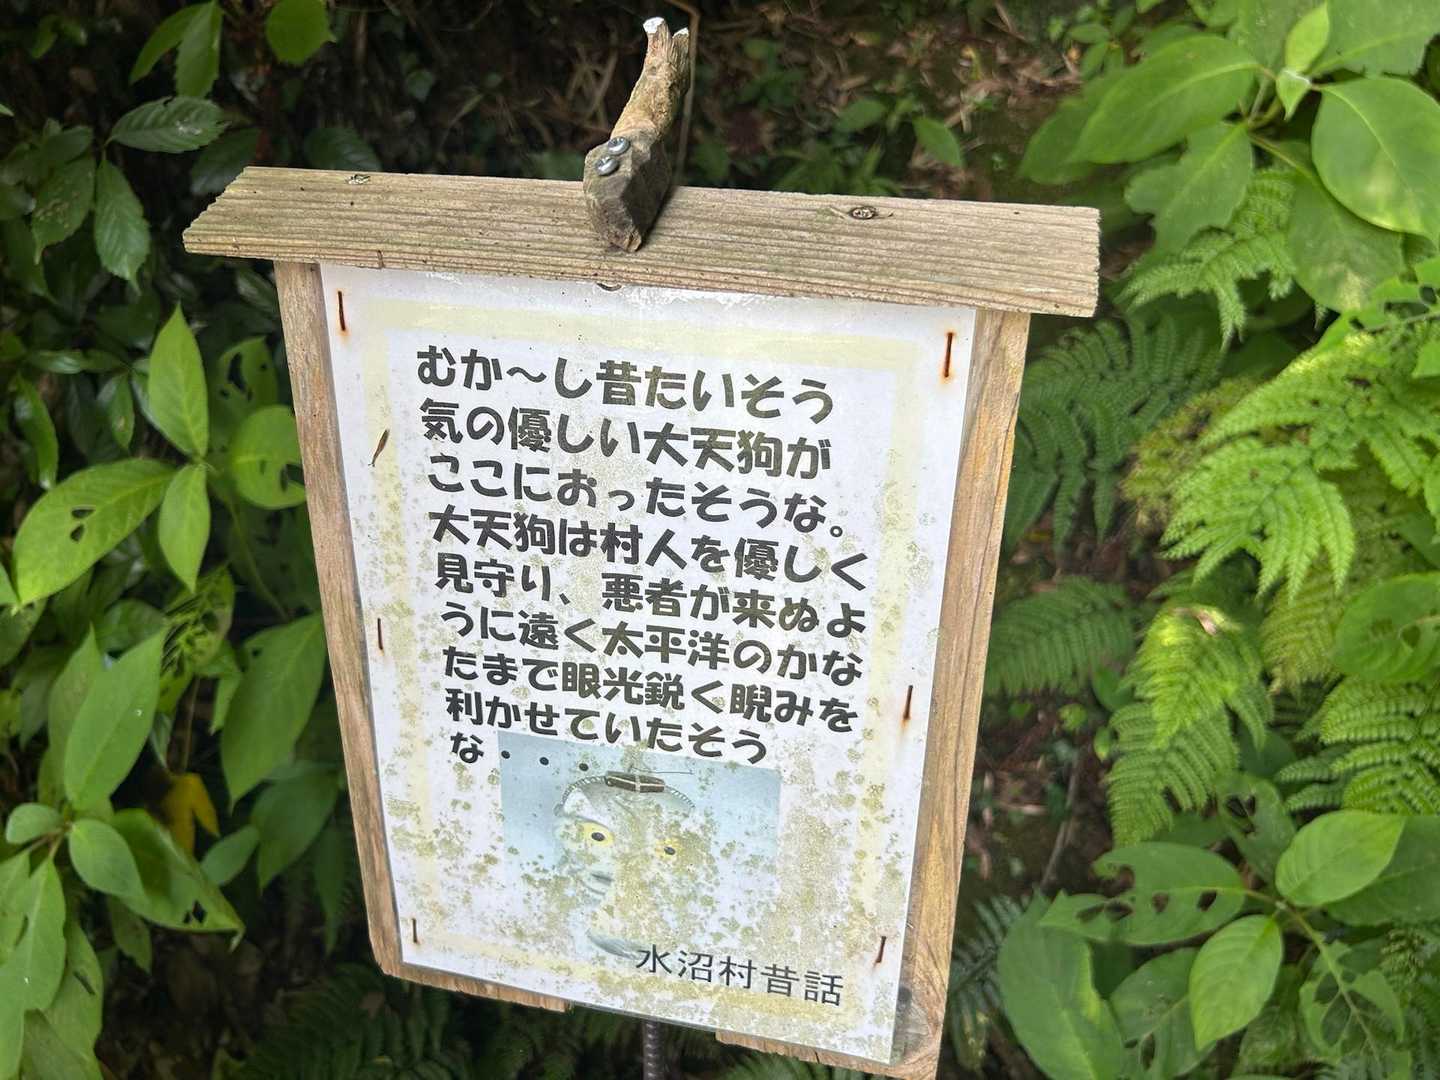 むか～し昔たいそう
気の優しい大天狗が
ここにおったそうな。
大天狗は村人を優しく
見守り、悪者が来ぬよ
うに遠く太平洋のかな
たまで眼光鋭く睨みを
利かせていたそう
な
水沼村昔話